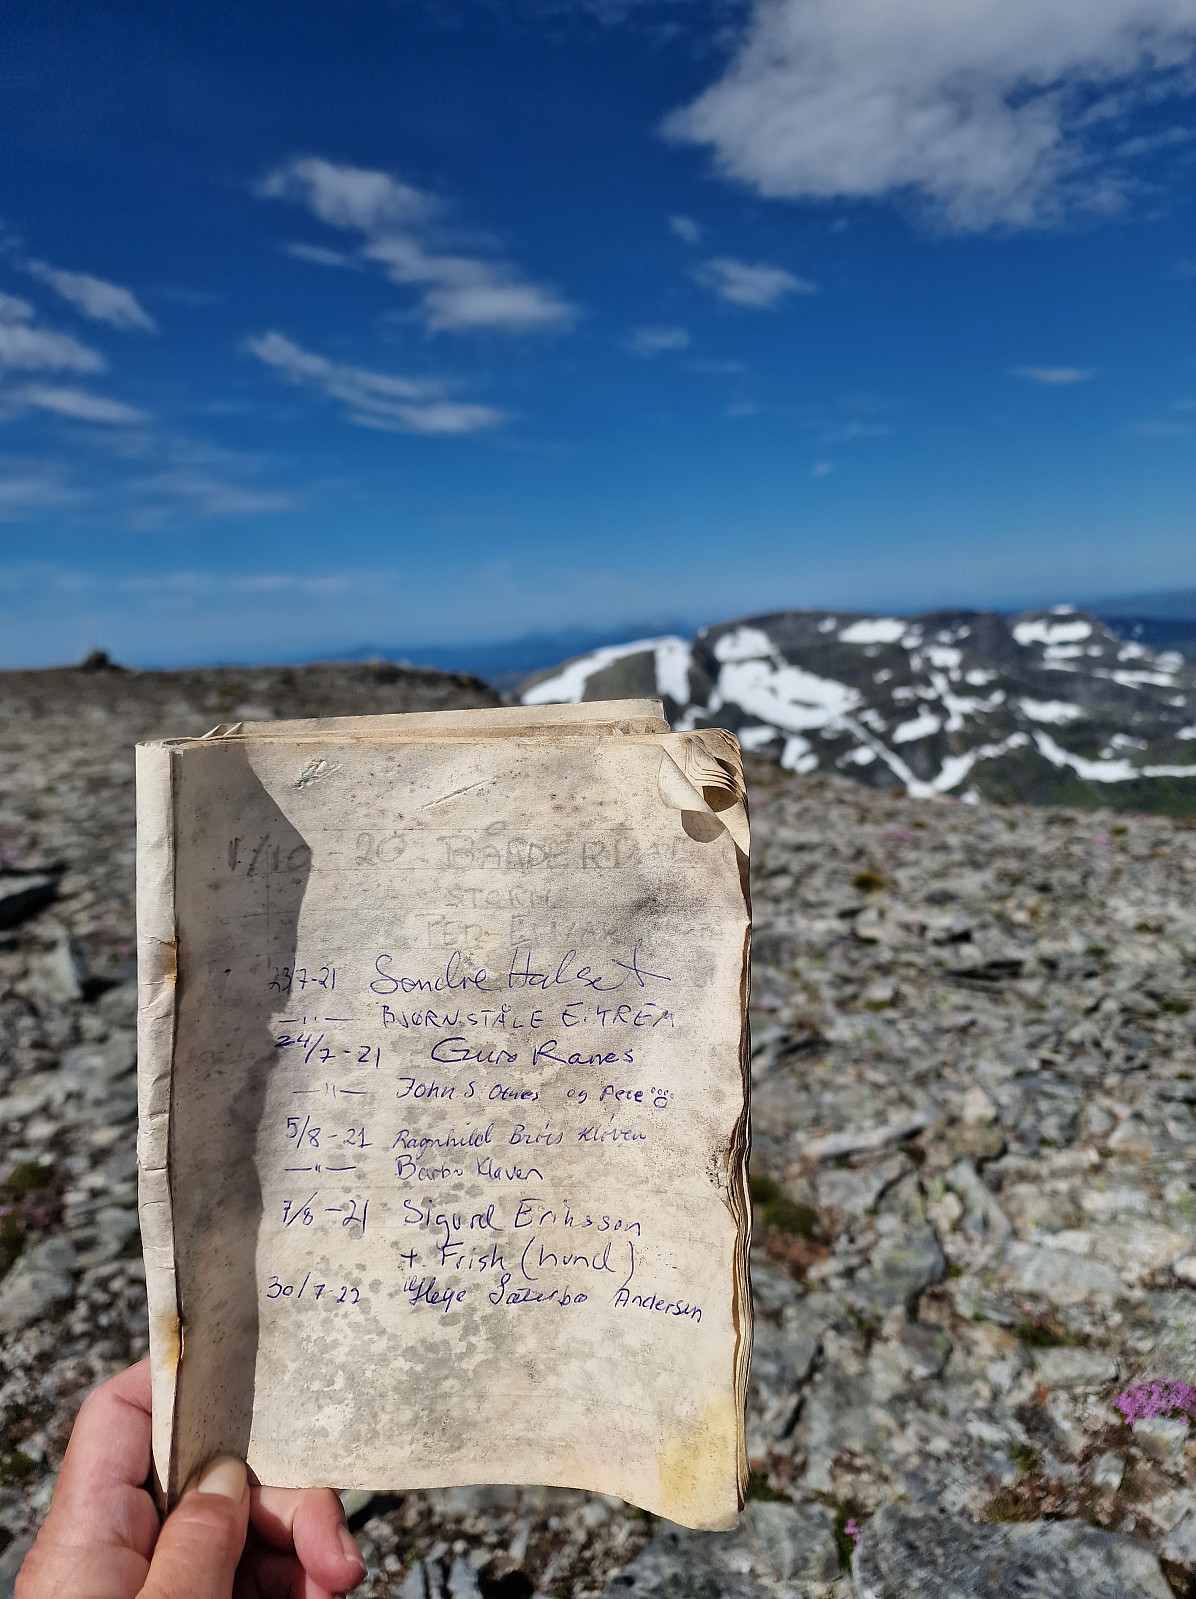 1/10-20 BÅRDERDAL
STORM
23/7-21 Sondre Halset
—"— BJØRN STÅLE EITREM
24/7-21 Guro Ranes
—"— John S Otnes og Peee
5/8-21 Ragnhild Kløven
—"— Kløven
7/8-21 Sigurd Eriksson
+ Frish (hund)
30/7-22 Helge Sæterbø Andersen